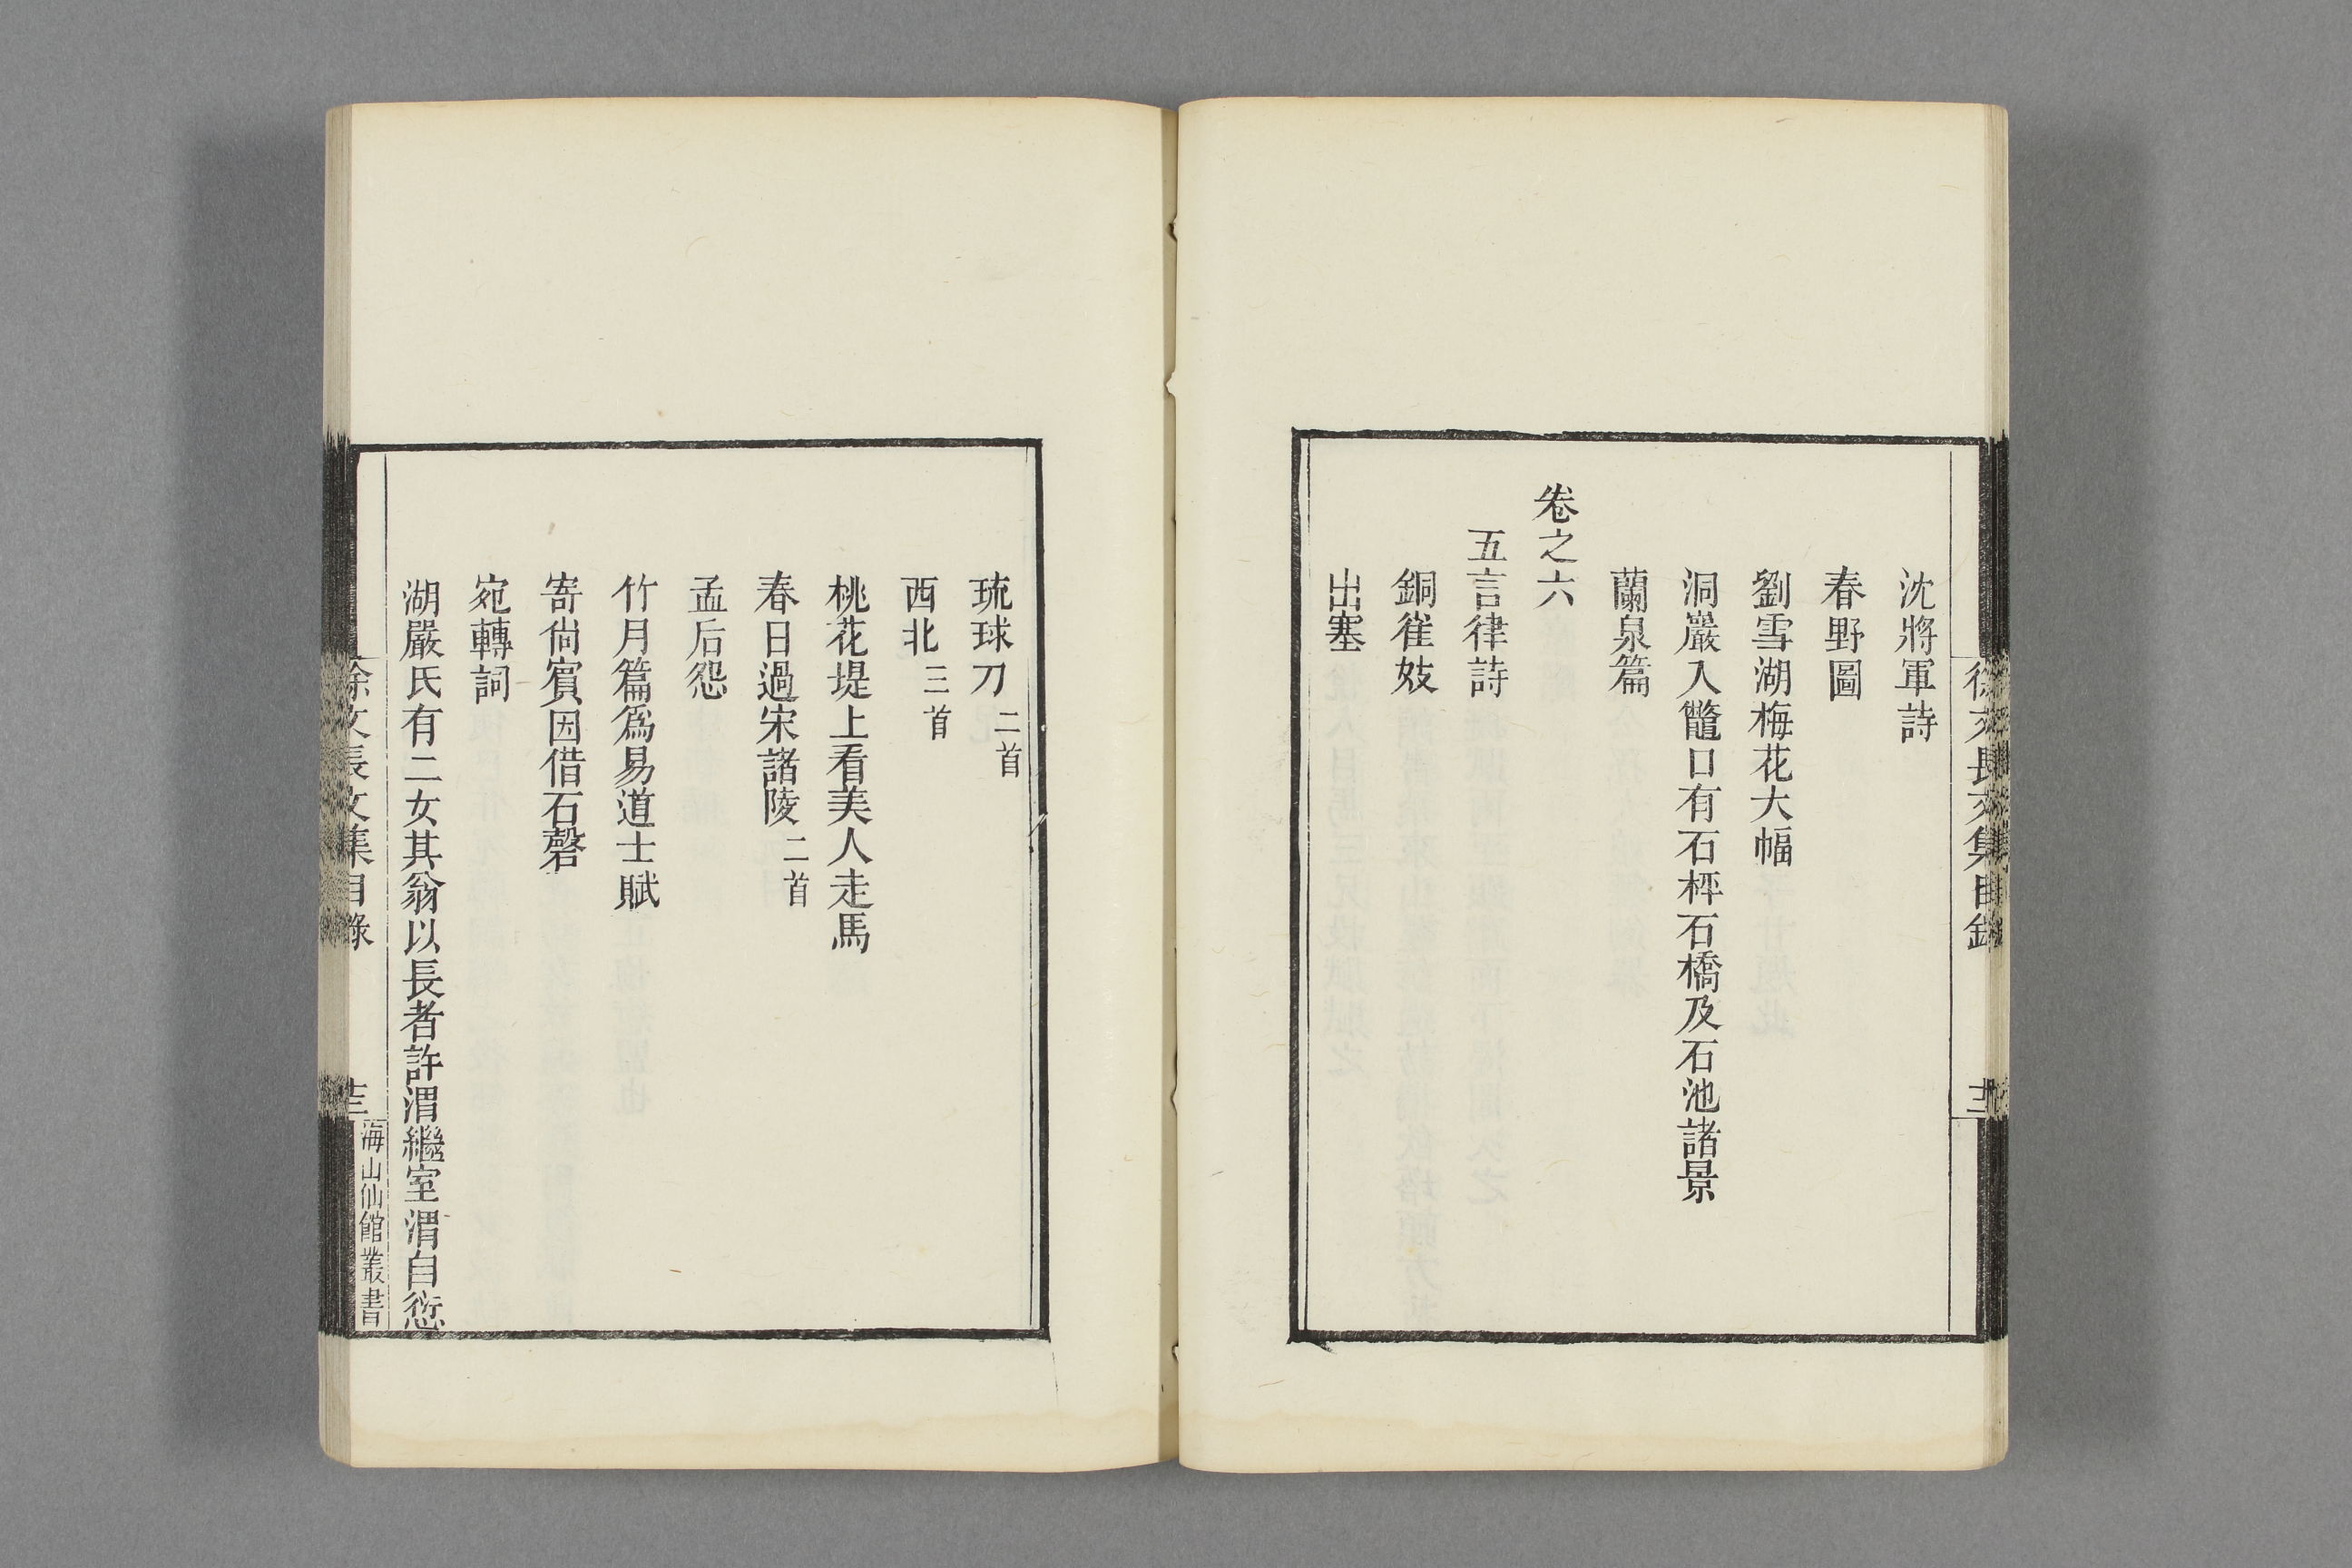 沈將軍詩
春野圖
劉雪湖梅花大幅
洞巖入鼈口有石枰石橋及石池諸景
蘭泉篇
卷之六
五言律詩
銅雀妓
出塞
琉球刀二首
西北三首
桃花堤上看美人走馬
春日過宋諸陵二首
孟后怨
竹月篇爲易道士賦
寄尙賓因借石磬
宛轉詞
湖嚴氏有二女其翁以長者許渭繼室渭自愆
徐文長文集目錄
十三
海山仙館叢書